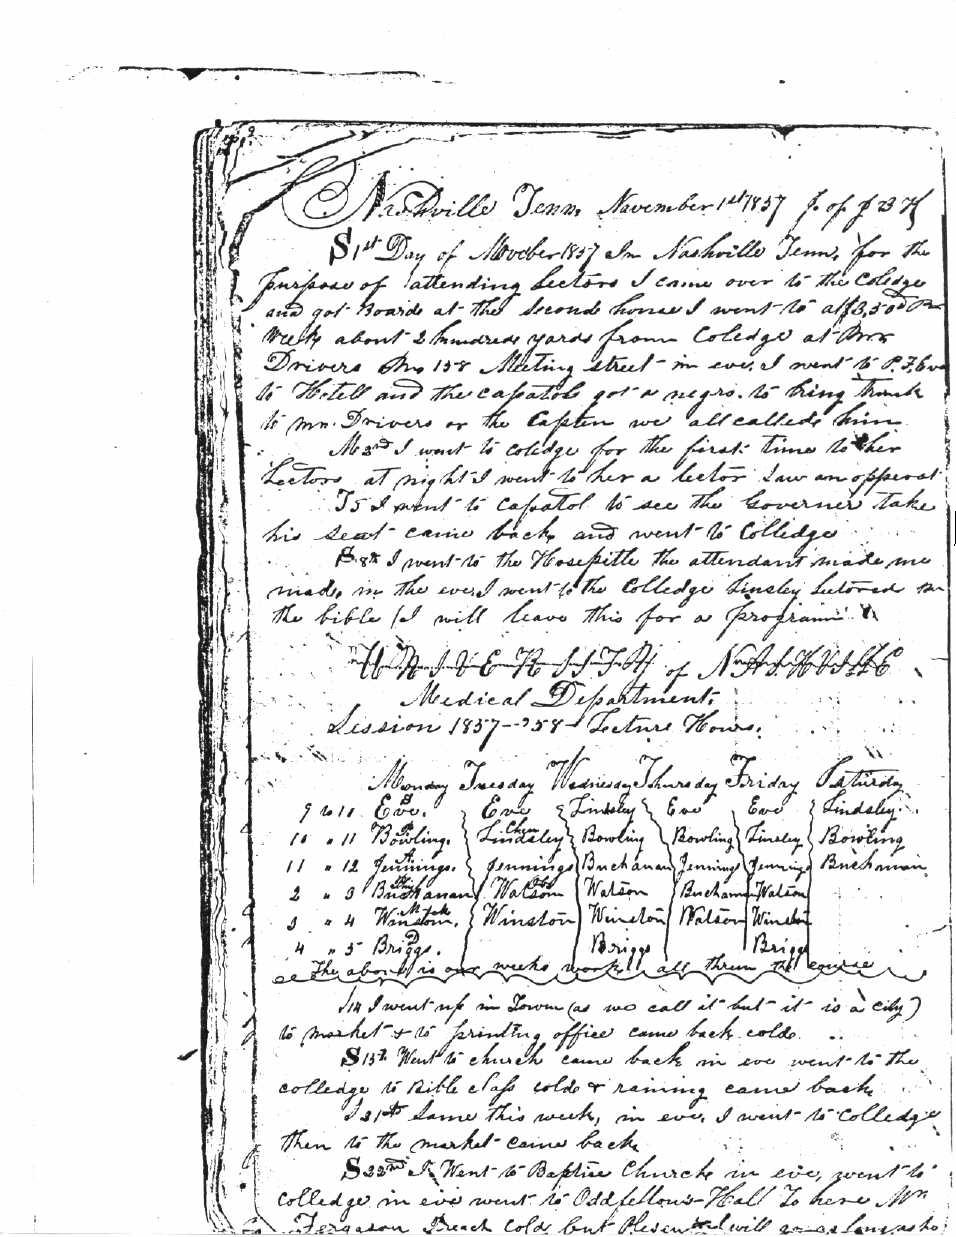 Nashville Tenn, November 1st 1857 J. of J B H
S 1st Day of November 1857 In Nashville Tenn, for the
purpose of attending Lectors I came over to the Coledge
and got Board at the second house I went to at $3,50d Pr
Week about 2 hundred yards from Coledge at Mrs
Drivers No 158 Meeting street in eve, I went to P. F. Eve
to Hotell and the capatol got a negro to bring trunk
to Mrs. Drivers or the Capten we all called him
M 2nd I went to coledge for the first time to her
Lectors at night I went to her a lector Saw an opperat
T 5 I went to capatol to see the Governer take
his seat came back and went to Colledge
S. 8th I went to the Hosepittle the attendant made me
mad, in the eve, I went to the Colledge Linsley lectored on
the bible (I will leave this for a program
UNIVERSITY of NASHVILLE
Medical Department,
Session 1857--'58- Lecture Hours,
Monday Tuesday Wednesday Thursday Friday Saturday
9 to 10 Eve. Eve Lindsley Eve Eve Lindsley.
10 " 11 Bowling. Lindsley Chem Bowling Bowling Linsley Bowling
11 " 12 Jennings. A Jennings Buchanan Jennings Jennings Buchanan
2 " 3 Buchanan Watson Watson Buchanan Watson
3 " 4 Winston. Winston Winston Watson Winston
4 " 5 Briggs. Briggs Briggs
The above is one weeks work all threw the course
S 14 I went up in Town (as we call it but it is a city)
to market & to printing office came back cold
S 15th Went to church came back in eve went to the
colledge to Bible class cold & raining came back
S 21st Same this week, in eve, I went to Colledge
then to the market came back
S 22nd I Went to Baptise Church in eve, went to
colledge in eve went to Oddfellows Hall To here Mr
Fergason Preach cold but Plesent I will go as long as he